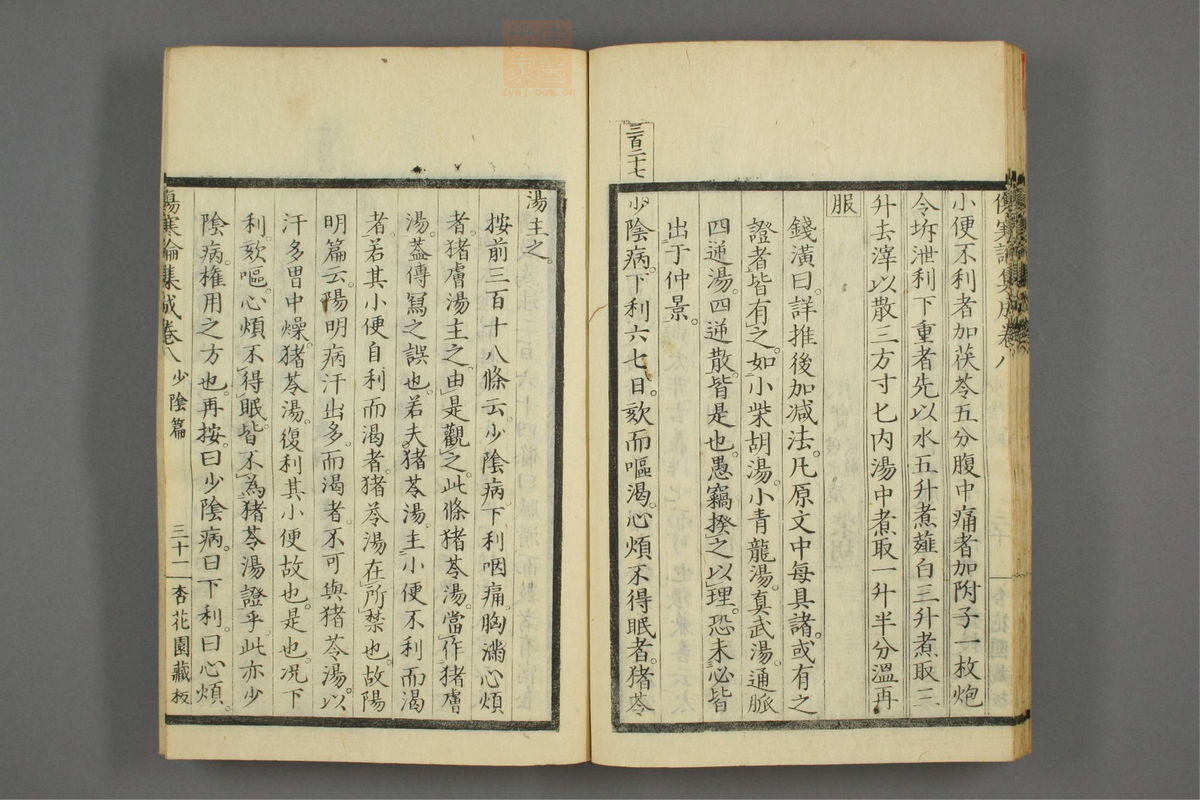 傷寒論集成卷八
小便不利者加茯苓五分腹中痛者加附子一枚炮
令坼泄利下重者先以水五升煮薤白三升煮取三
升去滓以散三方寸匕內湯中煮取一升半分溫再
服
錢潢曰詳推後加減法凡原文中每具諸或有之
證者皆有之如小柴胡湯小青龍湯真武湯通脈
四逆湯四逆散皆是也愚竊揆之以理恐未必皆
出于仲景
三百二十七
少陰病下利六七日欬而嘔渴心煩不得眠者猪苓
湯主之
按前三百十八條云少陰病下利咽痛胸滿心煩
者猪膚湯主之由是觀之此條猪苓湯當作猪膚
湯蓋傳寫之誤也若夫猪苓湯主小便不利而渴
者若其小便自利而渴者猪苓湯在所禁也故陽
明篇云陽明病汗出多而渴者不可與猪苓湯以
汗多胃中燥猪苓湯復利其小便故也是也況下
利欬嘔心煩不得眠皆不為猪苓湯證乎此亦少
陰病權用之方也再按曰少陰病曰下利曰心煩
傷寒論集成卷八 少陰篇 三十一 杏花園藏板